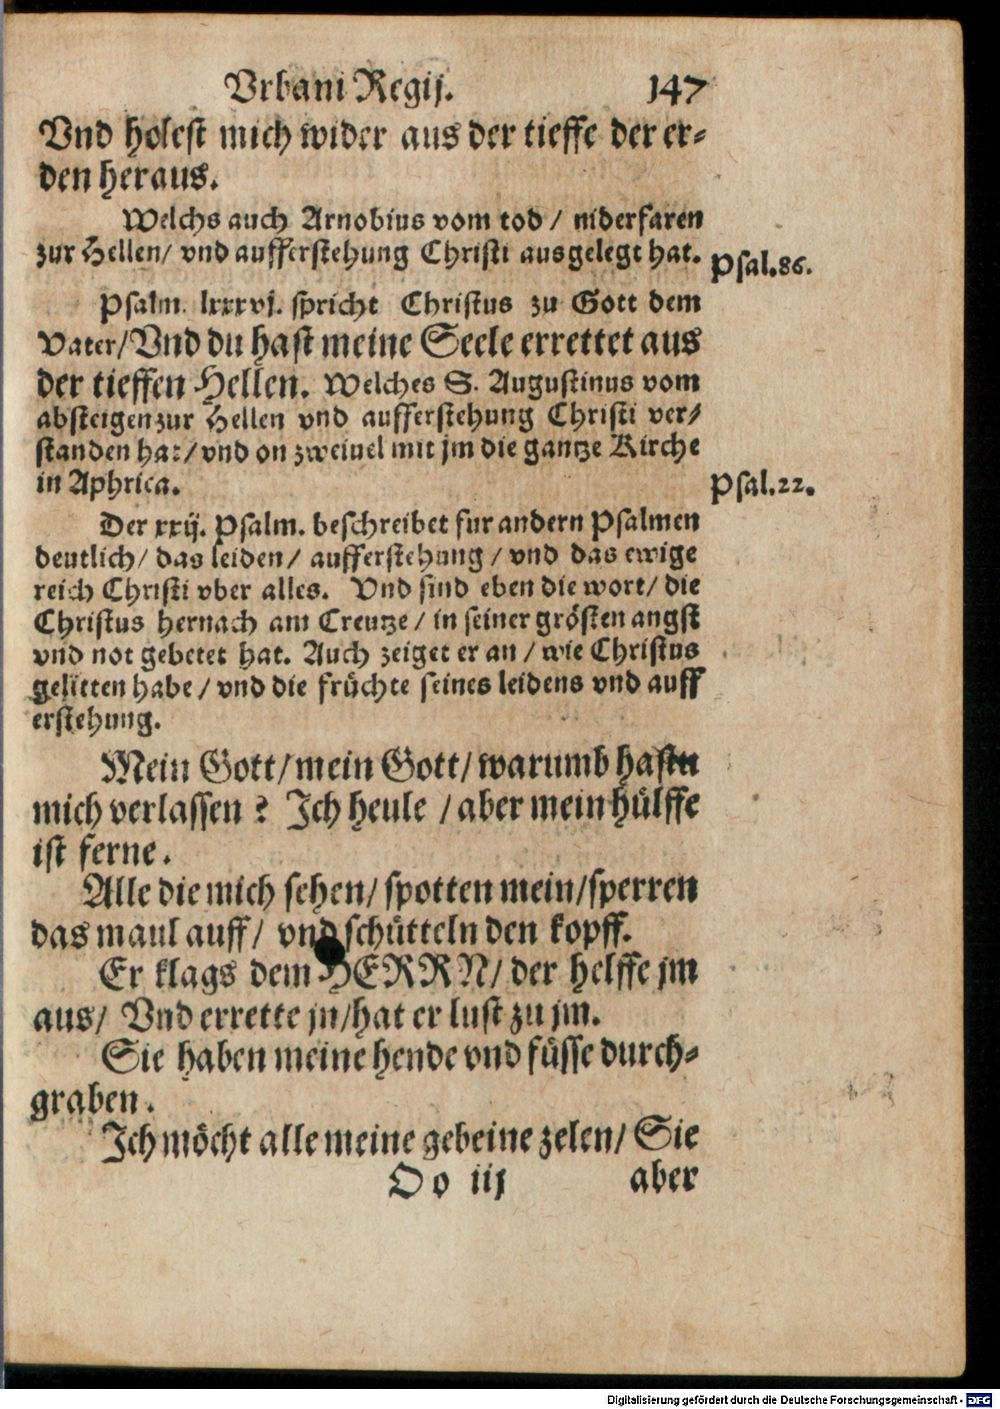 Vrbani Regij. 147
Vnd holest mich wider aus der tieffe der er⸗
den heraus.
Welchs auch Arnobius vom tod / niderfaren
zur Hellen / vnd aufferstehung Christi ausgelegt hat.
Psal.86.
Psalm. lxxxvj. spricht Christus zu Gott dem
Vater / Vnd du hast meine Seele errettet aus
der tieffen Hellen. Welches S. Augustinus vom
absteigen zur Hellen vnd aufferstehung Christi ver⸗
standen hat / vnd on zweiuel mit jm die gantze Kirche
in Aphrica.
Psal.22.
Der xxij. Psalm. beschreibet fur andern Psalmen
deutlich / das leiden / aufferstehung / vnd das ewige
reich Christi vber alles. Vnd sind eben die wort / die
Christus hernach am Creutze / in seiner grösten angst
vnd not gebetet hat. Auch zeiget er an / wie Christus
gelitten habe / vnd die früchte seines leidens vnd auff
erstehung.
Mein Gott / mein Gott / warumb hastu
mich verlassen? Ich heule / aber mein hülffe
ist ferne.
Alle die mich sehen / spotten mein / sperren
das maul auff / vnd schütteln den kopff.
Er klags dem HERRN / der helffe jm
aus / Vnd errette jn / hat er lust zu jm.
Sie haben meine hende vnd füsse durch⸗
graben.
Ich möcht alle meine gebeine zelen / Sie
Oo iij aber
Digitalisierung gefördert durch die Deutsche Forschungsgemeinschaft - DFG